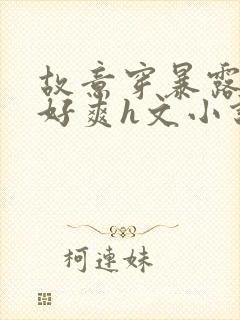 故意穿暴露
好爽h文小
柯連妹